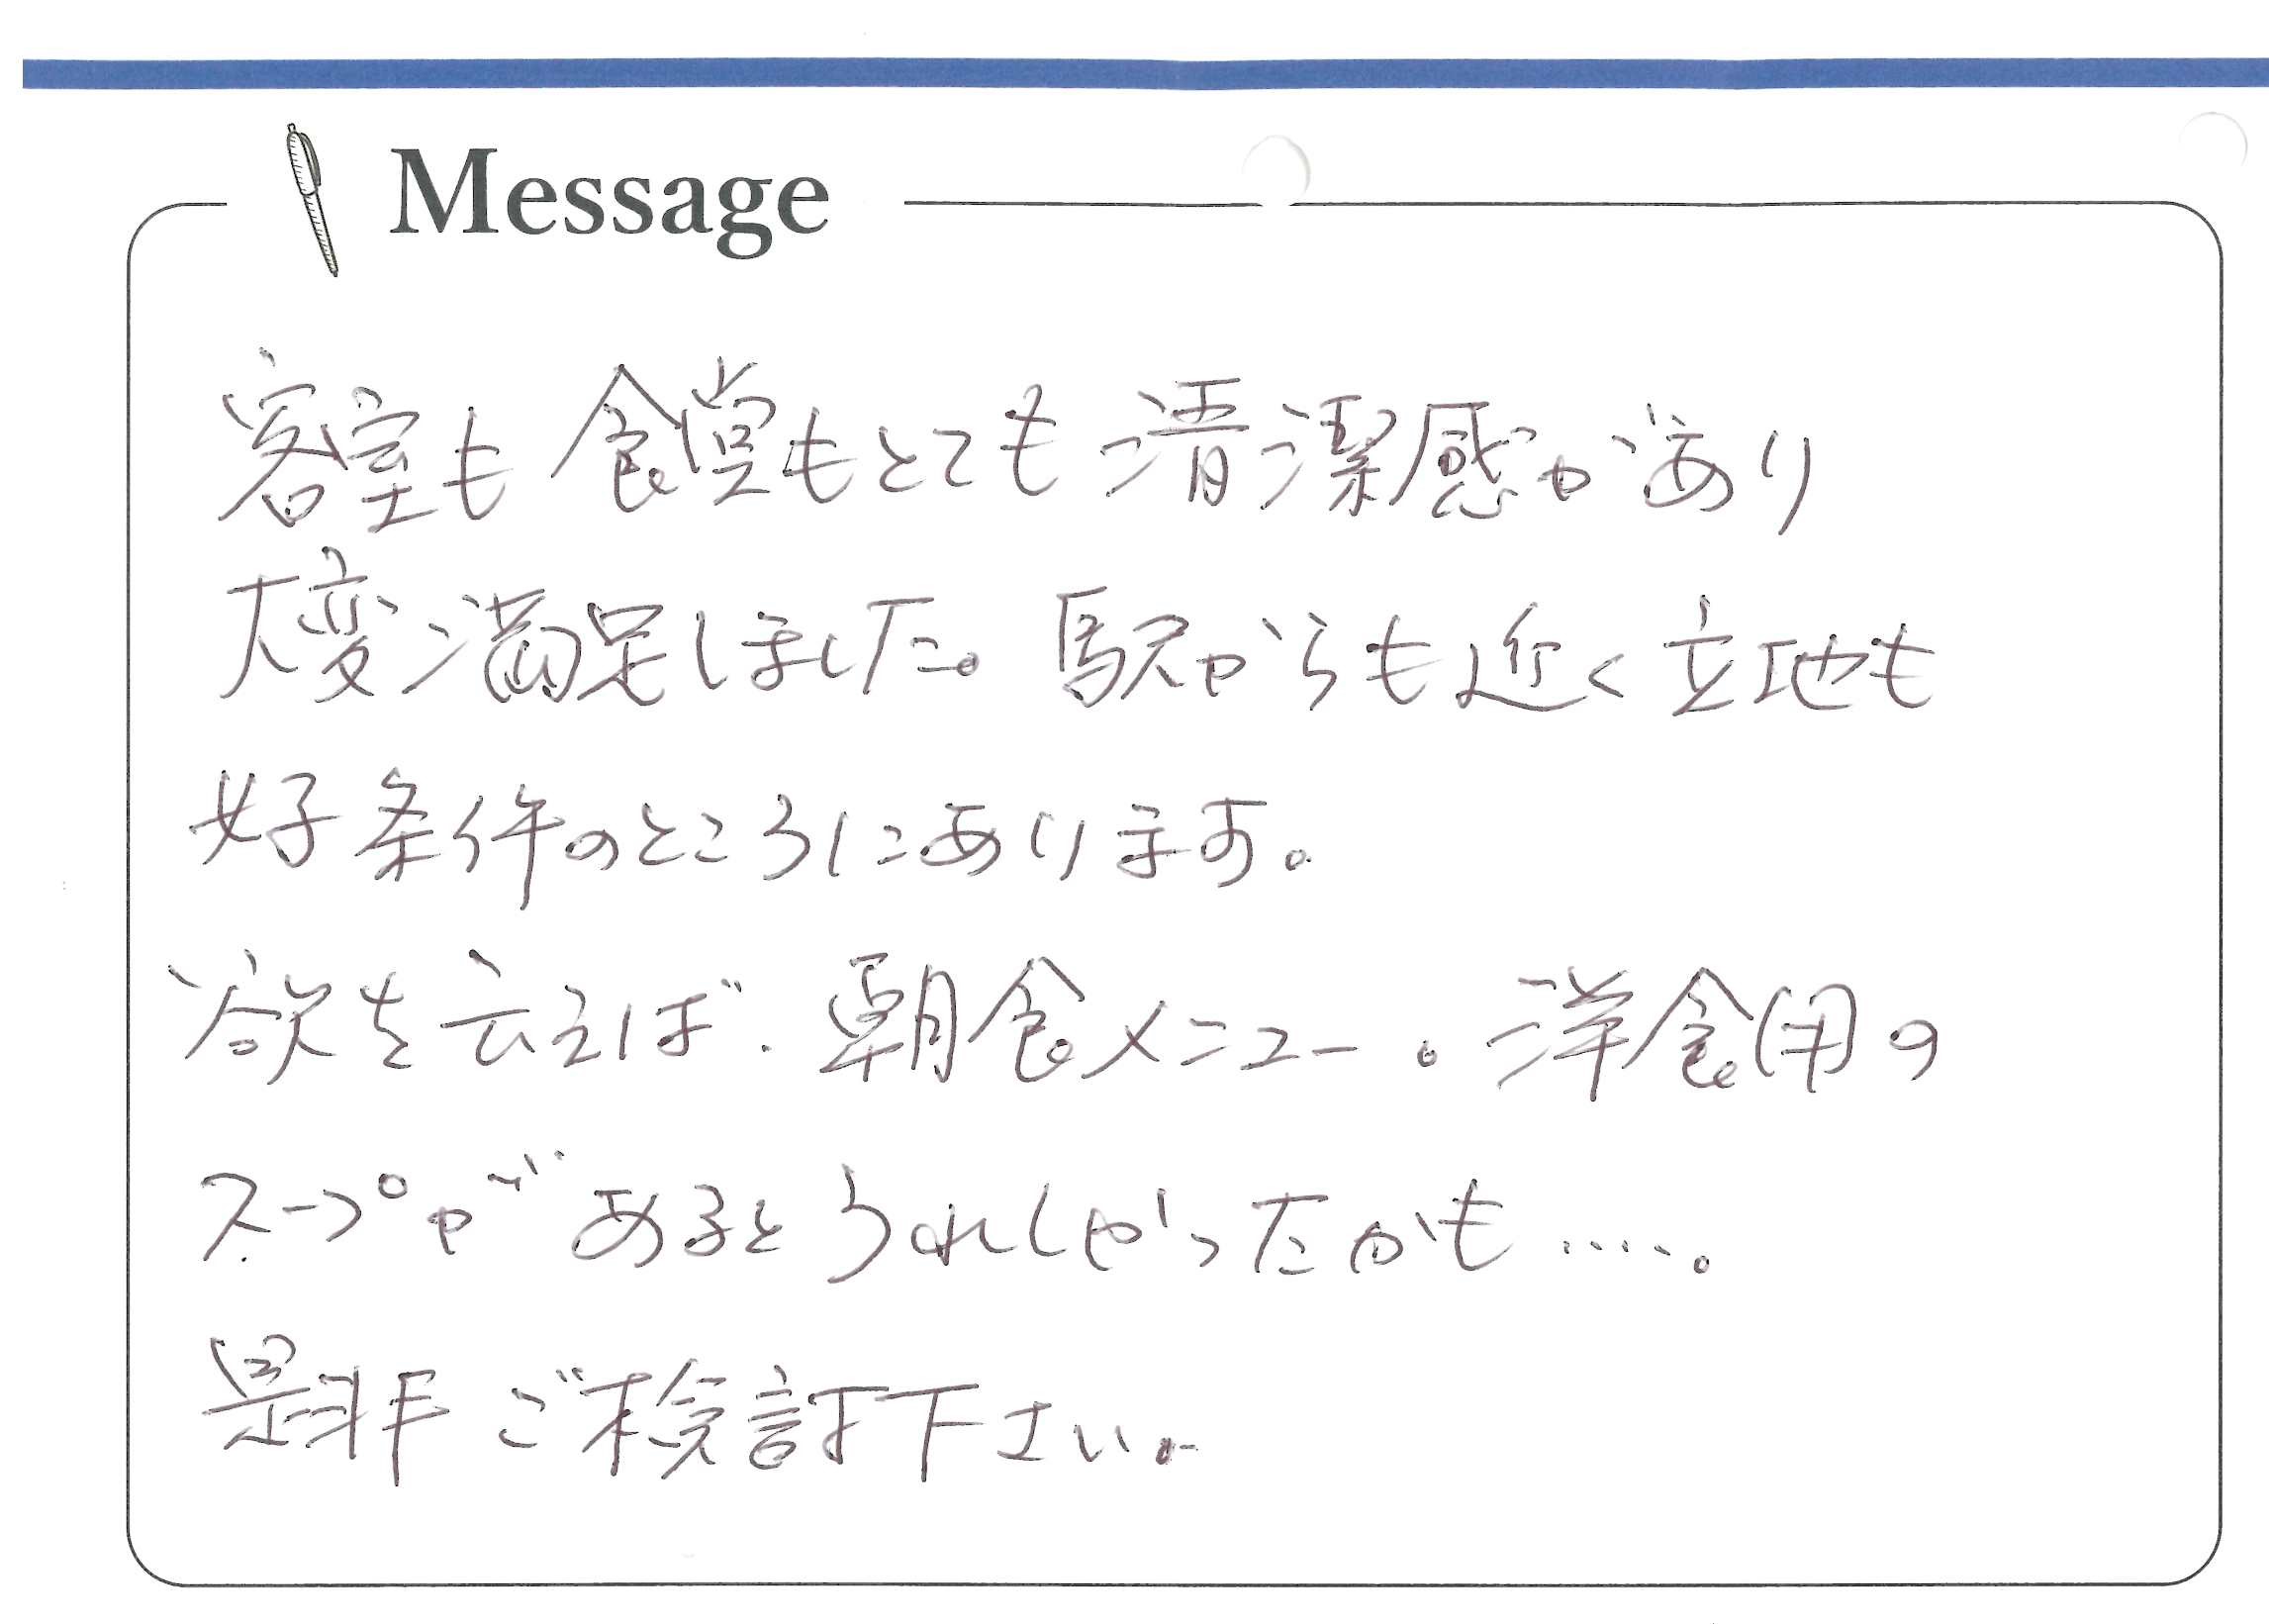 Message
客室も食堂もとても清潔感があり
大変満足しました。駅からも近く立地も
好条件のところにあります。
欲を云えば、朝食メニュー。洋食用の
スープがあるとうれしかったかも……。
是非ご検討下さい。